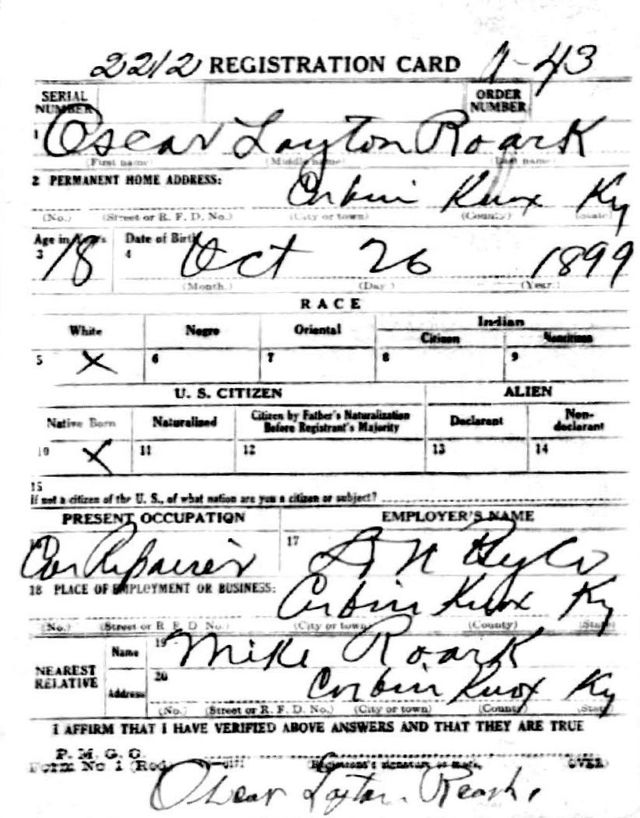 2212 REGISTRATION CARD 1-43
SERIAL NUMBER ORDER NUMBER
1 Oscar Layton Roark
(First name) (Middle name) (Last name)
2 PERMANENT HOME ADDRESS: Corbin Knox Ky
(No.) (Street or R. F. D. No.) (City or town) (County) (State)
Age in Years Date of Birth
3 18 4 Oct 26 1899
(Month.) (Day.) (Year.)
RACE
White Negro Oriental Indian
Citizen Noncitizen
5 X 6 7 8 9
U. S. CITIZEN ALIEN
Native Born Naturalized Citizen by Father's Naturalization Before Registrant's Majority Declarant Non-declarant
10 X 11 12 13 14
15
If not a citizen of the U. S., of what nation are you a citizen or subject?
PRESENT OCCUPATION EMPLOYER'S NAME
Car Repairer 17 L & N Ry Co
18 PLACE OF EMPLOYMENT OR BUSINESS: Corbin Knox Ky
(No.) (Street or R. F. D. No.) (City or town) (County) (State)
NEAREST RELATIVE
Name 19 Mike Roark
Address 20 Corbin Knox Ky
(No.) (Street or R. F. D. No.) (City or town) (County) (State)
I AFFIRM THAT I HAVE VERIFIED ABOVE ANSWERS AND THAT THEY ARE TRUE
P. M. G. O.
Form No 1 (Red) (Registrant's signature or mark) (OVER)
Oscar Layton Roark